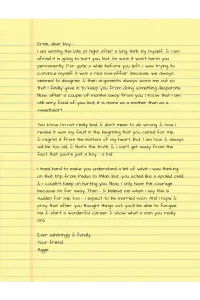 Ernie, dear boy-
I am writing this late at night after a long think by myself, & I am
afraid it is going to hurt you, but, be sure it won't harm you
permanently. For quite a while before you left, I was trying to
convince myself it was a real love-affair, because, we always
seemed to disagree, & then arguments always wore me out so
that I finally gave in to keep you from doing something desperate.
Now, after a couple of months away from you, I know that I am
still very fond of you, but, it is more as a mother than as a
sweetheart.
You know I'm not really bad, & don't mean to do wrong, & now I
realise it was my fault in the beginning that you cared for me,
& regret it from the bottom of my heart. But, I am now & always
will be too old, & that's the truth, & I can't get away from the
fact that you're just a boy - a kid.
I tried hard to make you understand a bit of what I was thinking
on that trip from Padua to Milan, but, you acted like a spoiled child,
& I couldn't keep on hurting you. Now, I only have the courage
because I'm far away. Then - & believe me when I say this is
sudden for me, too - I expect to be married soon. And I hope &
pray that after you thought things out, you'll be able to forgive
me & start a wonderful career & show what a man you really
are.
Ever admiringly & fondly,
Your friend,
Aggie